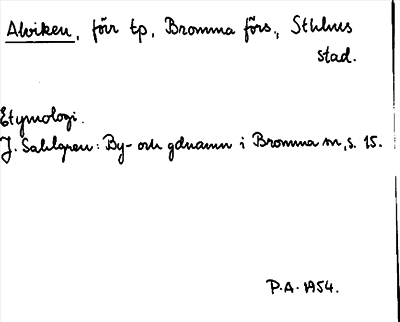 Alviken, förr tp, Bromma förs., Sthlms
stad.
Etymologi.
J. Sahlgren: By- och gdnamn i Bromma sn, s. 15.
P.A. 1954.